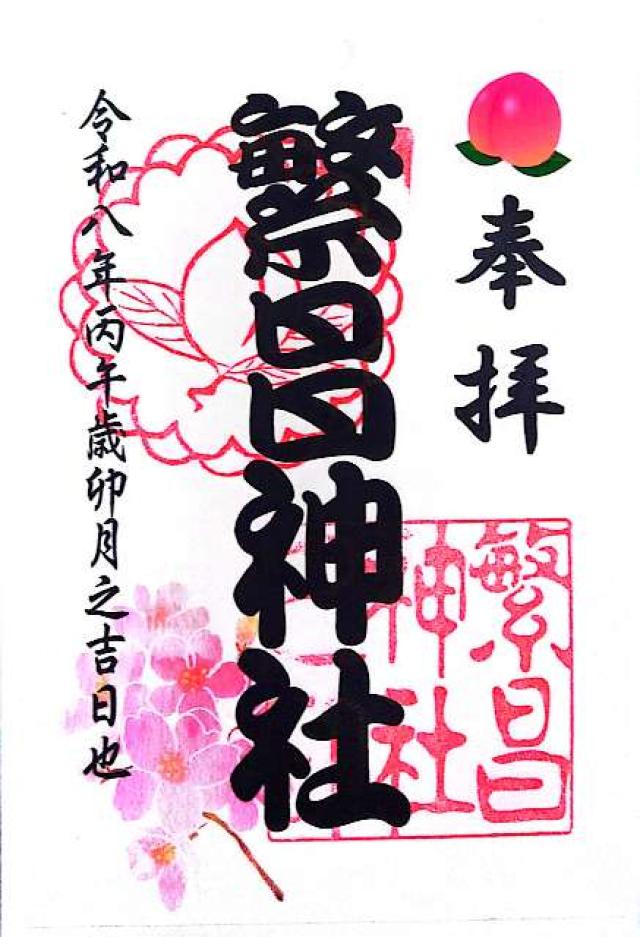 奉拝
繁昌神社
令和八年丙午歳卯月之吉日也
繁昌
神社